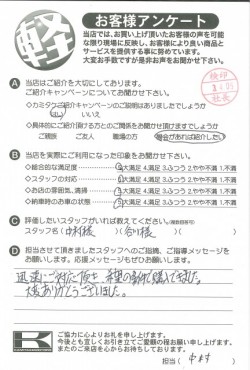 軽
お客様アンケート
当店では、お買い上げ頂いたお客様の声を可能
な限り現場に反映し、お客様により良い商品と
サービスを提供する事に努めています。
大変お手数ですが是非お声をお聞かせ下さい。
A 当店はご紹介を大切にしております。
ご紹介キャンペーンについてお聞かせ下さい。
◇カミタケご紹介キャンペーンのご説明はありましたでしょうか
はい いいえ
◇具体的にご紹介頂ける方とのご関係をお聞かせ頂けますでしょうか
ご親族 ご友人 職場の方 機会があれば紹介したい
検印
社長
B 当店を実際にご利用になった印象をお聞かせ下さい。
◇総合的な満足度 5大満足 4.満足 3.ふつう 2.やや不満 1.不満
◇スタッフの対応 5大満足 4.満足 3.ふつう 2.やや不満 1.不満
◇お店の雰囲気、清掃 5大満足 4.満足 3.ふつう 2.やや不満 1.不満
◇納車時のお車の状態 5大満足 4.満足 3.ふつう 2.やや不満 1.不満
C 評価したいスタッフがいれば教えてください。(複数回答可)
スタッフ名 ( 中村様 ) ( 谷川様 ) (
D 担当させて頂きましたスタッフへのご指摘、ご指導メッセージを
お願い致します。応援メッセージもぜひお願いします。
迅速にご対応頂き、希望の条件で購入できました。
大変ありがとうございました。
K
ご協力に心よりお礼を申し上げます。
今後とも宜しくお引き立てご愛顧の程お願い申し上げます。
またのご来店を心からお待ちしております。
担当 ( 中村 )